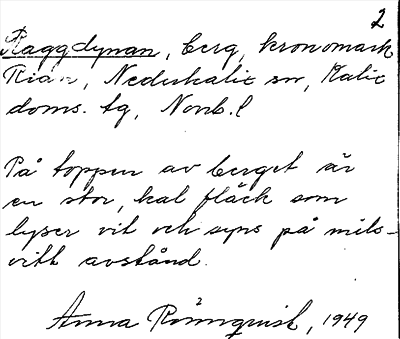 2
Raggdynan, berg, kronomark
Rian, Nederkalix sn, Kalix
doms. tg, Norrb. l
På toppen av berget är
en stor, kal fläck som
lyser vit och syns på mils-
vitt avstånd.
Anna Rönnquist, 1949